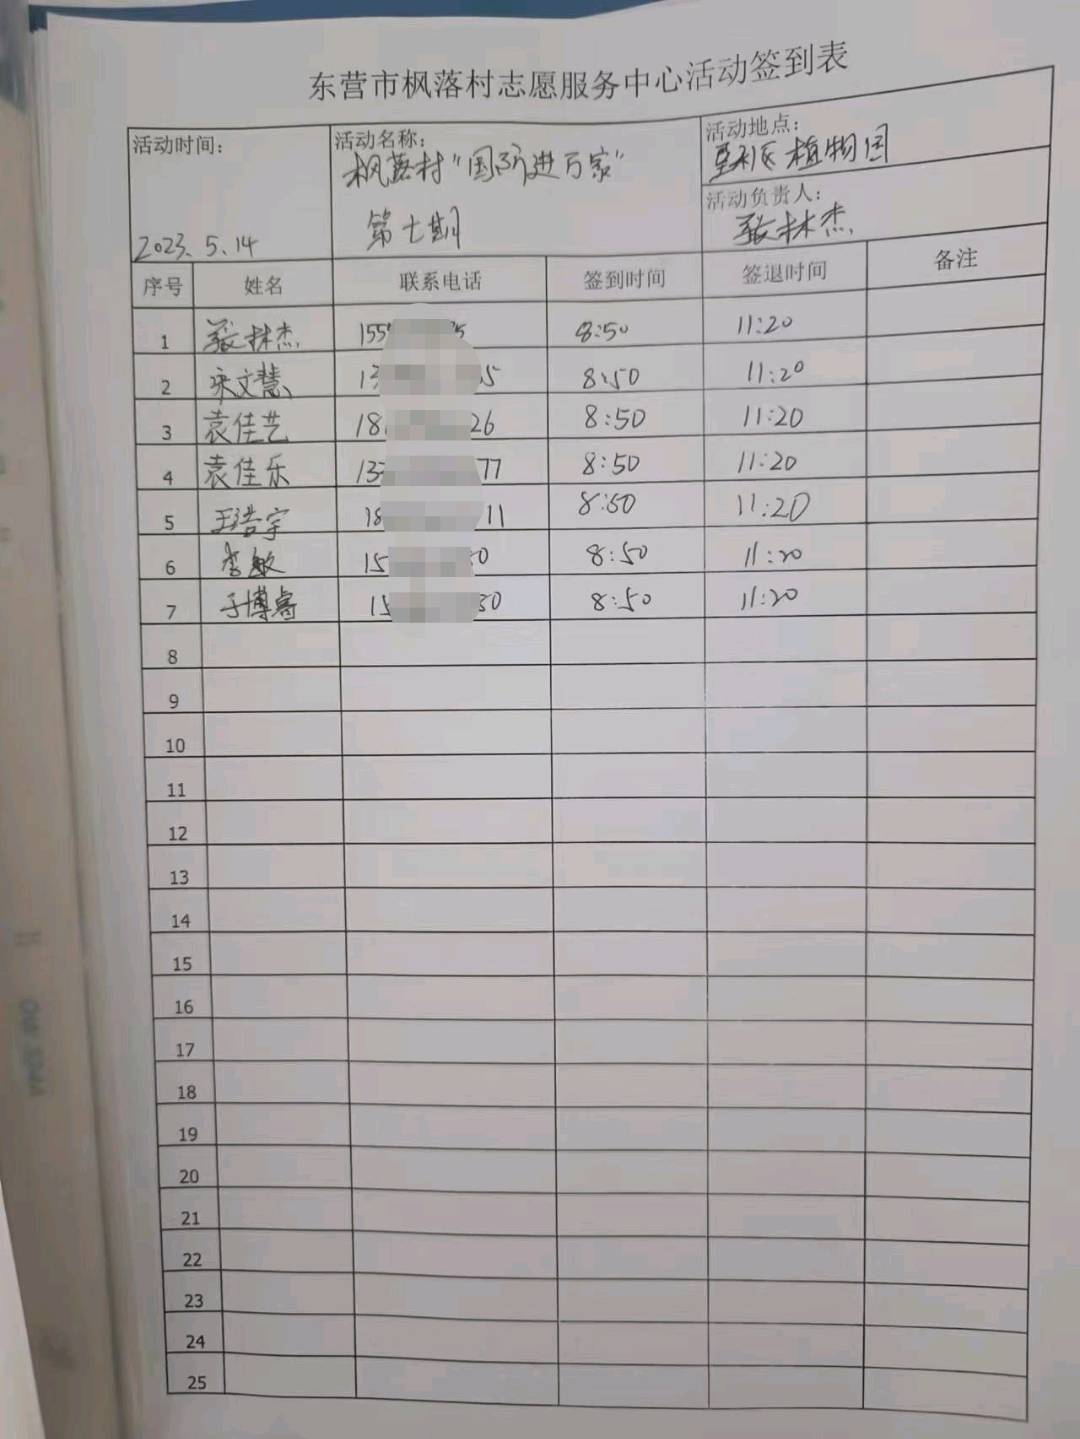 东营市枫落村志愿服务中心活动签到表
活动时间：
2023.5.14
活动名称：
枫落村“国防进万家”
第七期
活动地点：
垦利区植物园
活动负责人：
张林杰
序号 姓名 联系电话 签到时间 签退时间 备注
1 张林杰 155 5 8:50 11:20
2 宋文慧 13 5 8:50 11:20
3 袁佳艺 18 26 8:50 11:20
4 袁佳乐 13 77 8:50 11:20
5 王浩宇 18 11 8:50 11:20
6 李敏 15 0 8:50 11:20
7 于博睿 15 30 8:50 11:20
8
9
10
11
12
13
14
15
16
17
18
19
20
21
22
23
24
25